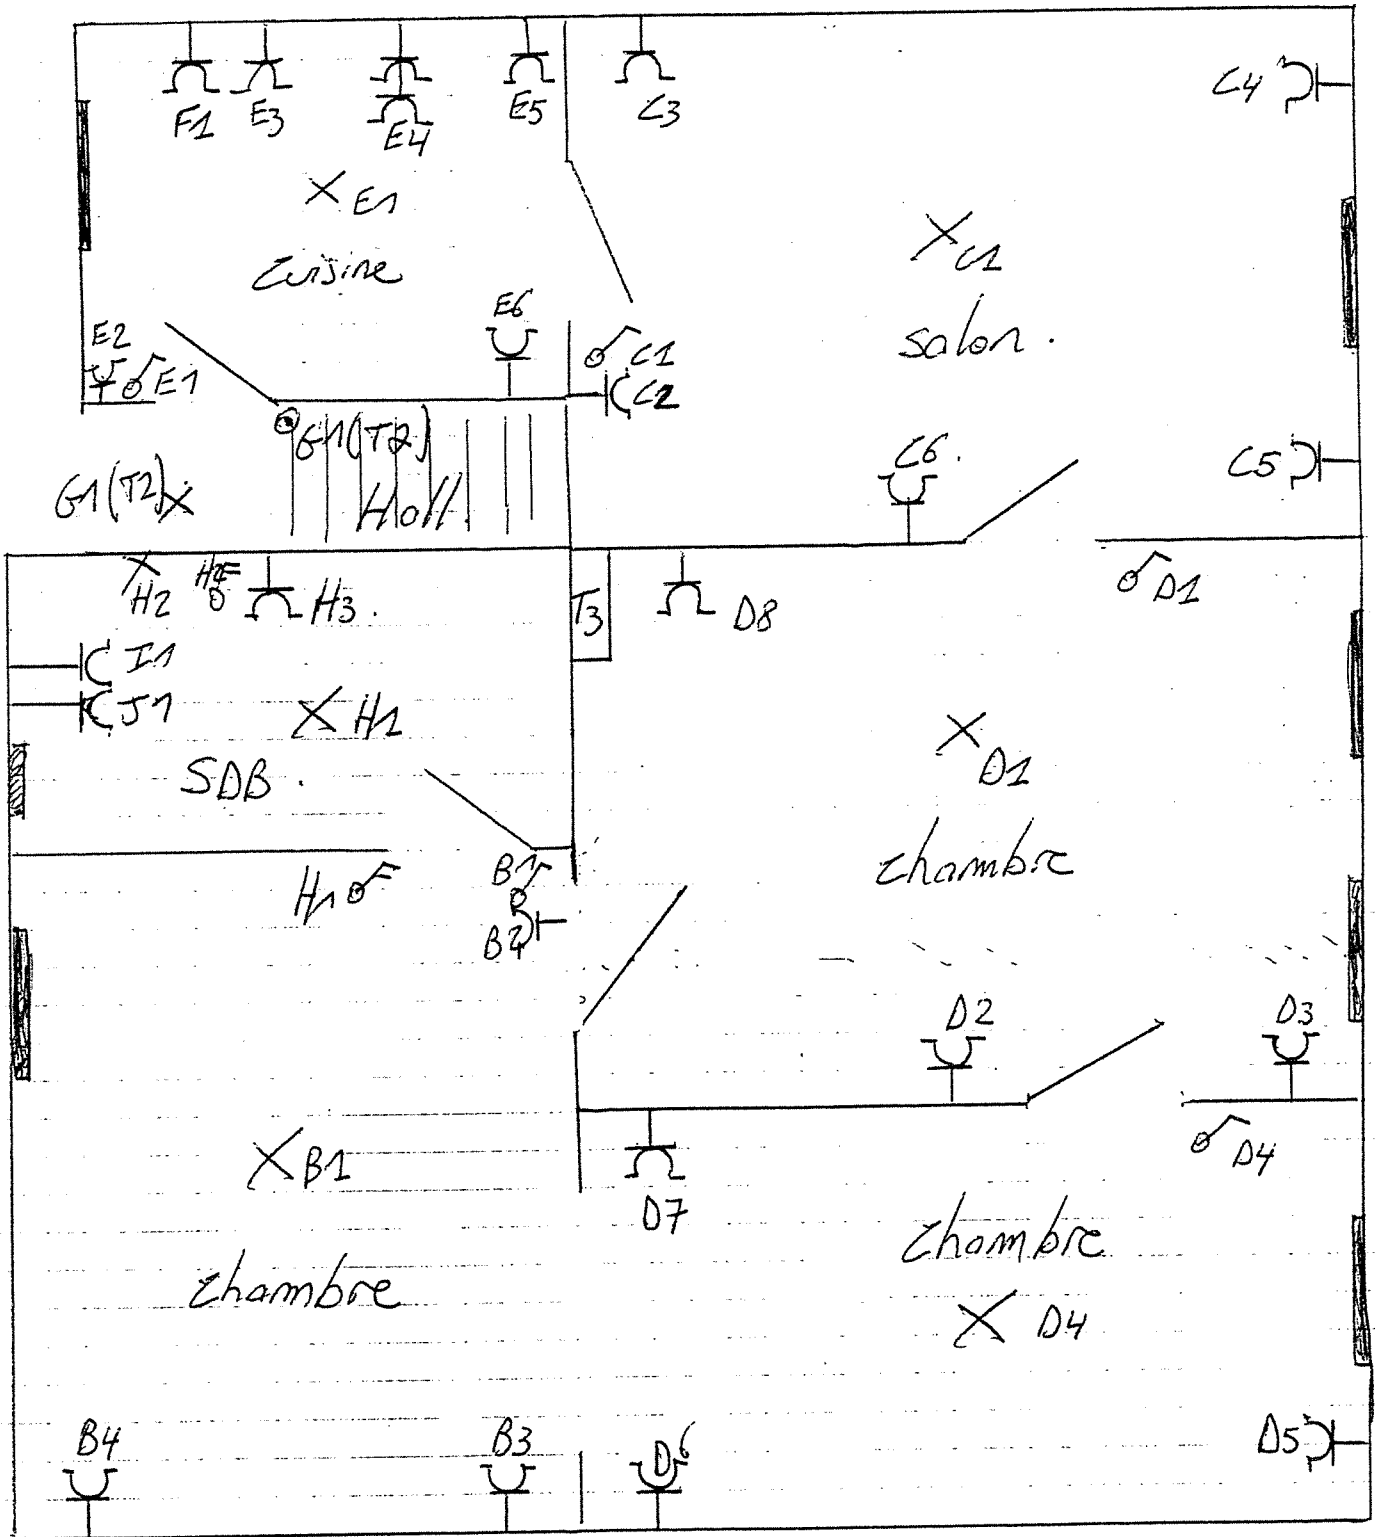 F1 E3 E4 E5 C3 C4
E1
cuisine
C1
salon.
E2 E1 E6 C1
C2
G1(T2)
C6. C5
G1(T2) Hall
H2 H3. T3 D8 D1
I1
J1 H1
SDB. D1
chambre
H1 B1
D2 D3
B1 D4
D7
chambre chambre
D4
B4 B3 D6 D5